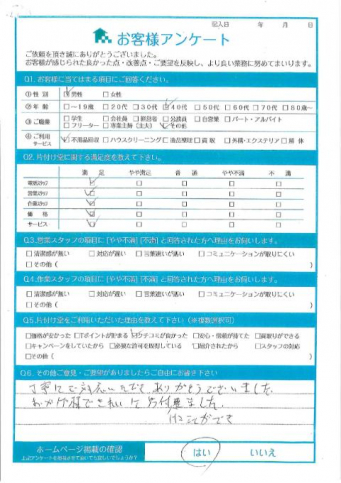 記入日 年 月 日
お客様アンケート
ご依頼を頂き誠にありがとうございました。
お客様が感じられた良かった点・改善点・ご要望を反映し、より良い業務に努めてまいります。
Q1. お客様に当てはまる項目にご回答ください。
①性 別 ☑男性 □女性
②年 齢 □~19歳 □20代 □30代 ☑40代 □50代 □60代 □70代 □80歳~
③ご職業 □学生 □会社員 □公務員 □自営業 □パート・アルバイト
□フリーター □専業主婦(主夫) ☑その他
④ご利用サービス ☑不用品回収 □ハウスクリーニング □遺品整理 □買取 □外構・エクステリア □解体
Q2. 片付け堂に関する満足度を教えて下さい。
満 足 やや満足 普 通 やや不満 不 満
電話スタッフ ☑ □ □ □ □
営業スタッフ ☑ □ □ □ □
作業スタッフ ☑ □ □ □ □
価 格 ☑ □ □ □ □
サービス ☑ □ □ □ □
Q3. 営業スタッフの項目に [やや不満] [不満] と回答された方へ理由をお伺いします。
□清潔感が無い □対応が遅い □言葉遣いが悪い □コミュニケーションが取りにくい
□その他 (
Q4. 作業スタッフの項目に [やや不満] [不満] と回答された方へ理由をお伺いします。
□清潔感が無い □対応が遅い □言葉遣いが悪い □コミュニケーションが取りにくい
□その他 (
Q5. 片付け堂をご利用いただいた理由を教えて下さい (※複数選択可)
□価格が安かった □Tポイントが貯まる ☑クチコミが良かった □安心・信頼が持てた □買取りができる
□キャンペーンをしていたから □必要な許可を取得している □紹介されたから □スタッフの対応
□その他 (
Q6. その他ご意見・ご要望がありましたらご自由にお書き下さい
丁寧にご対応いただき、ありがとうございました。
おかげ様できれいに片付きました。
ホームページ掲載の確認
はい いいえ